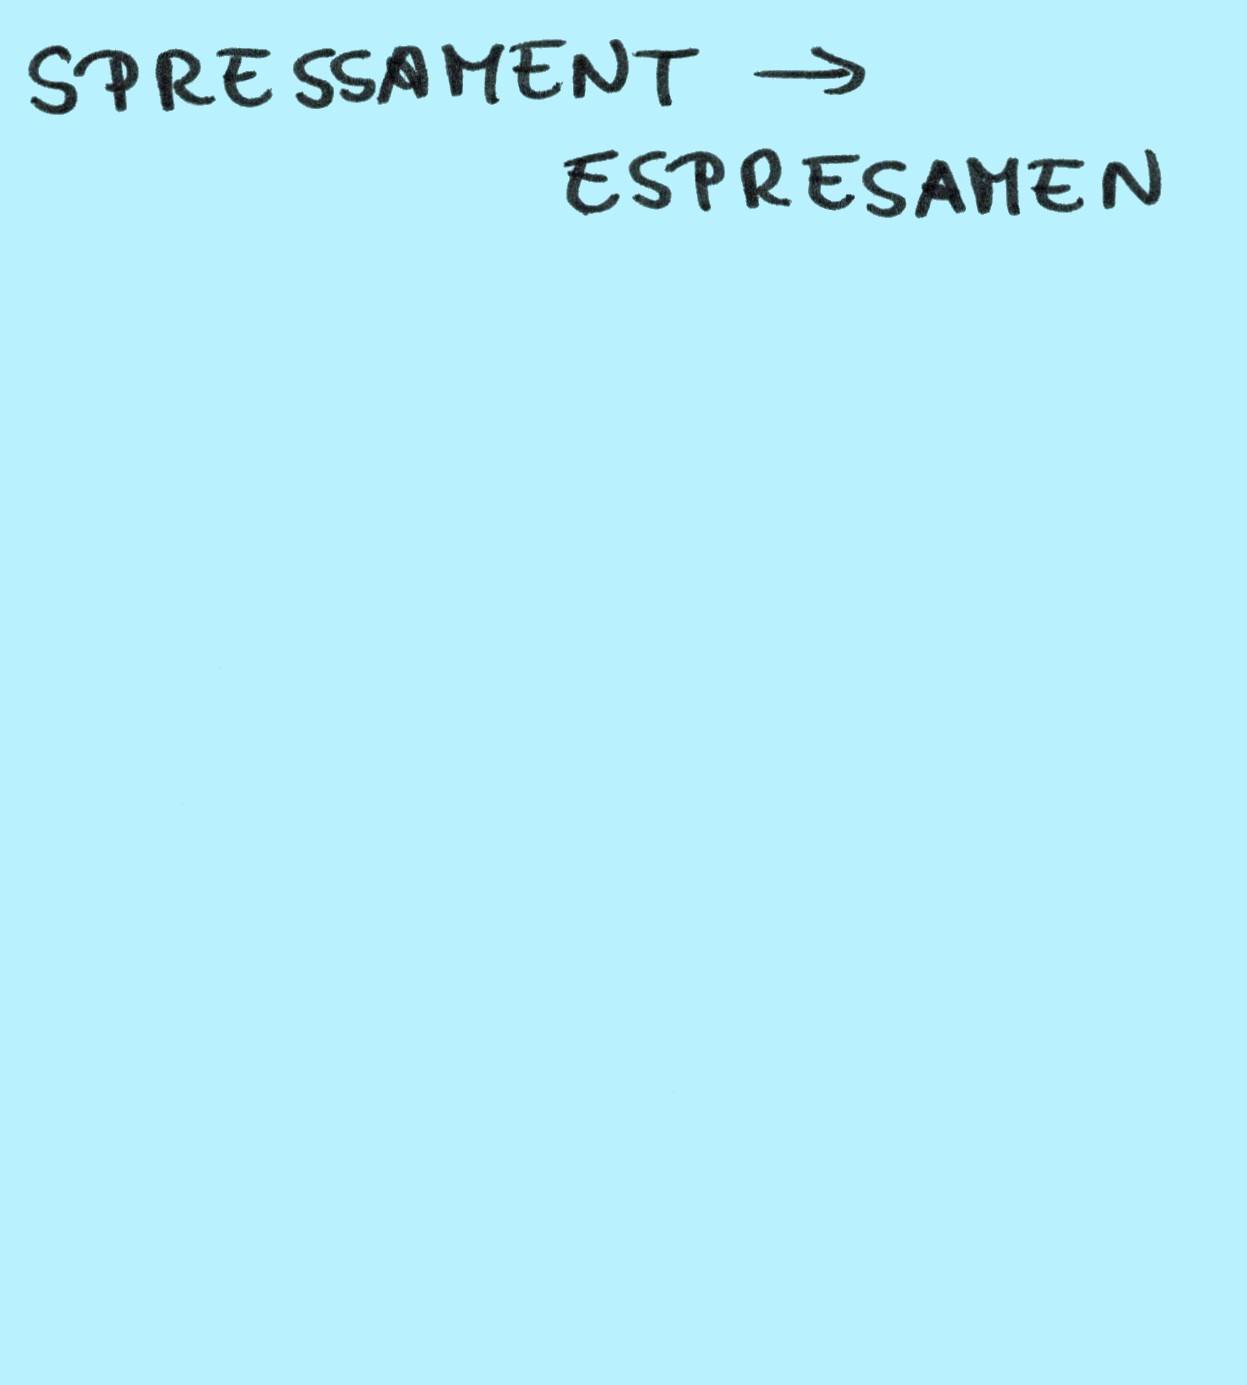 SPRESSAMENT →
ESPRESAMEN